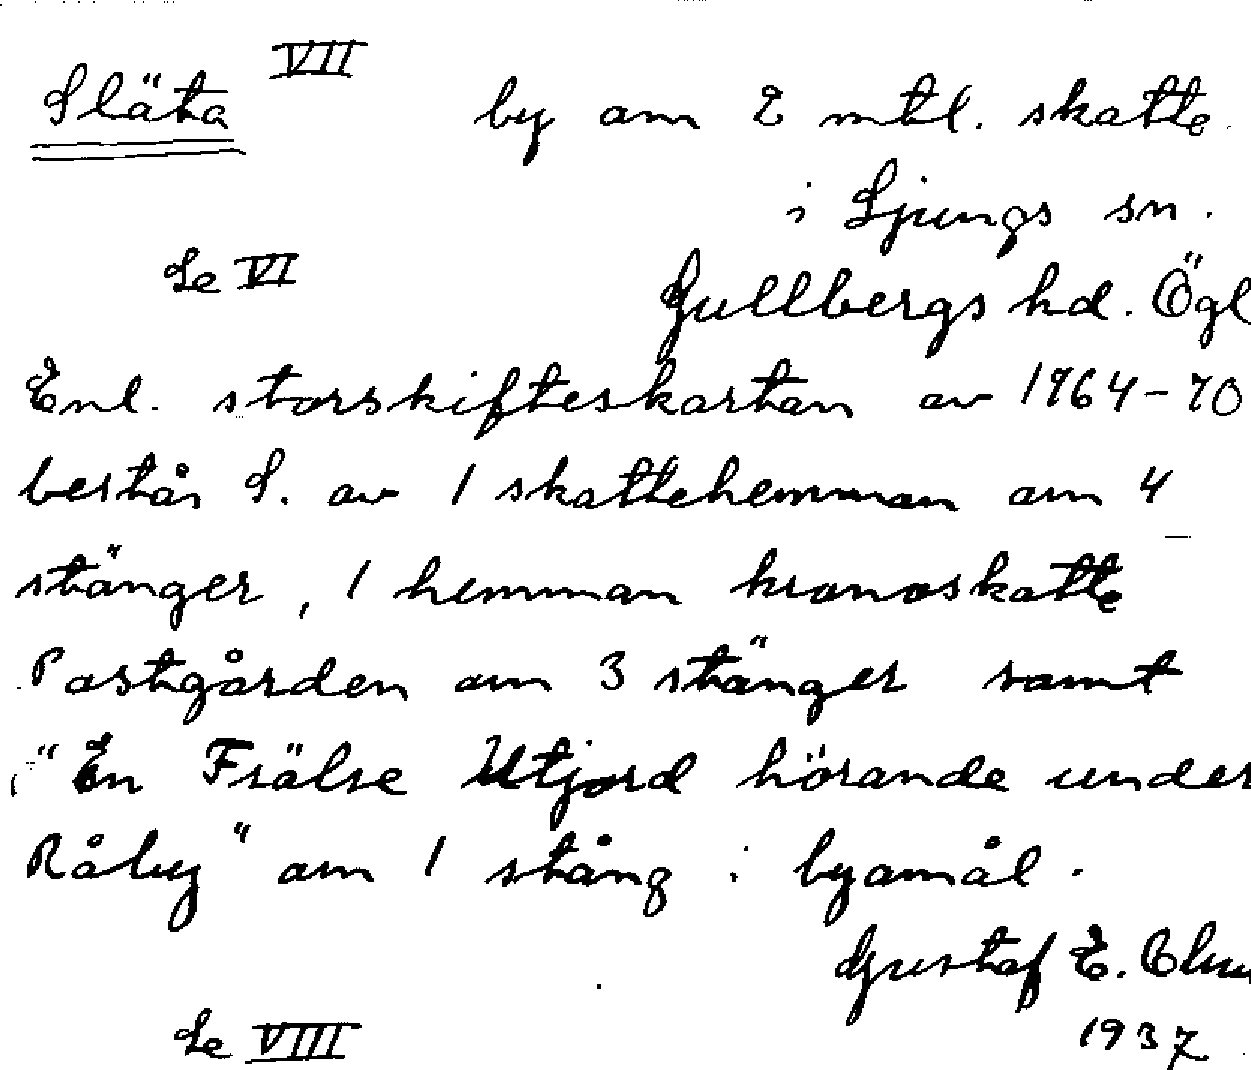 Släta VII by om 2 mtl. skatte
i Ljungs sn.
Se VI Gullbergs hd. Ögl
Enl. storskifteskartan av 1764-70
består S. av 1 skattehemman om 4
stänger, 1 hemman kronoskatte
Postgården om 3 stänger samt
"En Frälse Utjord hörande under
Råby" om 1 stång i byamål.
Gustaf E.
Se VIII 1937